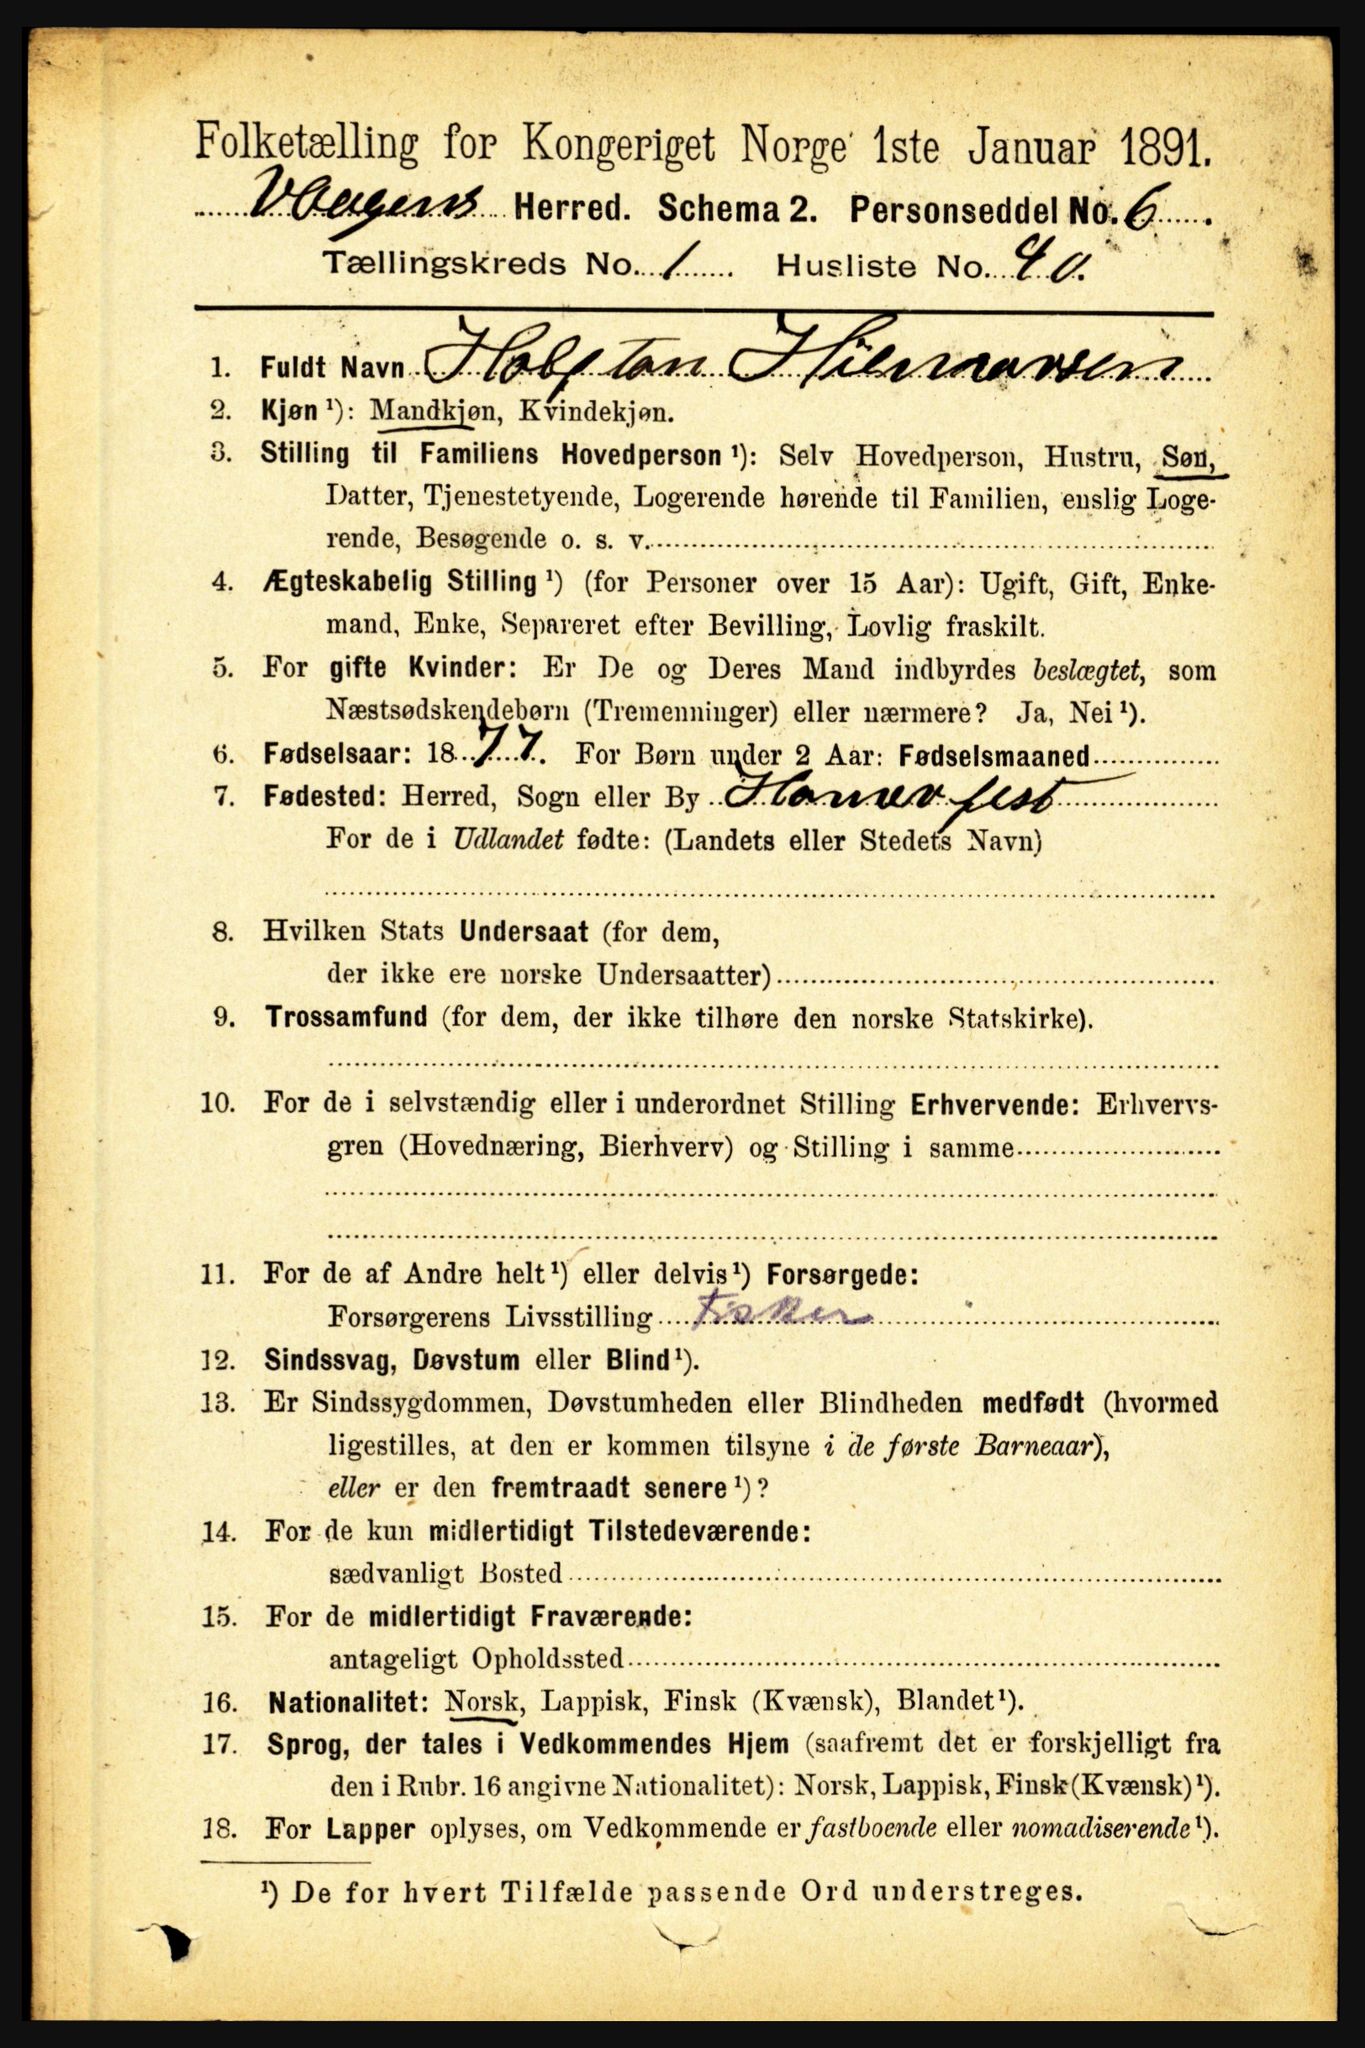 Folketælling for Kongeriget Norge 1ste Januar 1891.
Vaagens Herred. Schema 2. Personseddel No. 6.
Tællingskreds No. 1 Husliste No. 40.
1. Fuldt Navn Halftan Hilmarsen
2. Kjøn ¹): Mandkjøn, Kvindekjøn.
3. Stilling til Familiens Hovedperson ¹): Selv Hovedperson, Hustru, Søn,
Datter, Tjenestetyende, Logerende hørende til Familien, enslig Loge-
rende, Besøgende o. s. v.
4. Ægteskabelig Stilling ¹) (for Personer over 15 Aar): Ugift, Gift, Enke-
mand, Enke, Separeret efter Bevilling, Lovlig fraskilt.
5. For gifte Kvinder: Er De og Deres Mand indbyrdes beslægtet, som
Næstsødskendebørn (Tremenninger) eller nærmere? Ja, Nei ¹).
6. Fødselsaar: 1877. For Børn under 2 Aar: Fødselsmaaned
7. Fødested: Herred, Sogn eller By Hamerfest
For de i Udlandet fødte: (Landets eller Stedets Navn)
8. Hvilken Stats Undersaat (for dem,
der ikke ere norske Undersaatter)
9. Trossamfund (for dem, der ikke tilhøre den norske Statskirke).
10. For de i selvstændig eller i underordnet Stilling Erhvervende: Erhvervs-
gren (Hovednæring, Bierhverv) og Stilling i samme
11. For de af Andre helt ¹) eller delvis ¹) Forsørgede:
Forsørgerens Livsstilling Fisker
12. Sindssvag, Døvstum eller Blind ¹).
13. Er Sindssygdommen, Døvstumheden eller Blindheden medfødt (hvormed
ligestilles, at den er kommen tilsyne i de første Barneaar),
eller er den fremtraadt senere ¹)?
14. For de kun midlertidigt Tilstedeværende:
sædvanligt Bosted
15. For de midlertidigt Fraværende:
antageligt Opholdssted
16. Nationalitet: Norsk, Lappisk, Finsk (Kvænsk), Blandet ¹).
17. Sprog, der tales i Vedkommendes Hjem (saafremt det er forskjelligt fra
den i Rubr. 16 angivne Nationalitet): Norsk, Lappisk, Finsk (Kvænsk) ¹).
18. For Lapper oplyses, om Vedkommende er fastboende eller nomadiserende ¹).
¹) De for hvert Tilfælde passende Ord understreges.